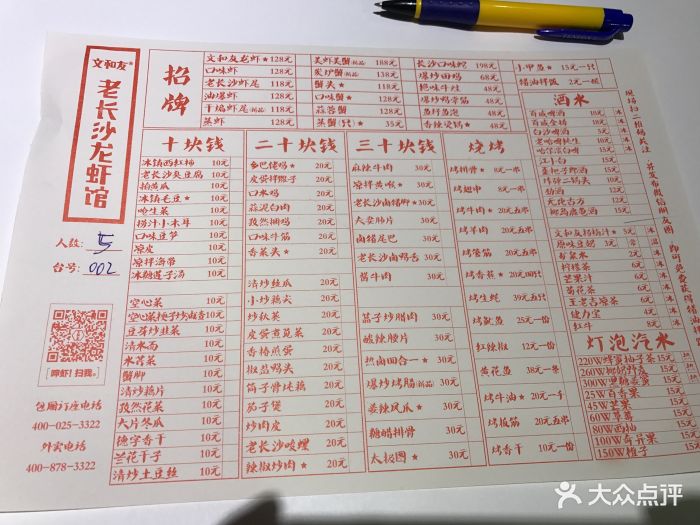 文和友
老长沙龙虾馆
人数: 5
台号: 002
[呷虾! 扫我。]
包厢订座电话
400-025-3322
外卖电话
400-878-3322
招牌
文和友老虾★ 128元
口味虾 128元
老长沙虾尾 128元
油爆虾 128元
干煸虾尾(新品) 128元
蒸虾 128元
美虾美蟹(新品) 88元
128元
蟹头★
口味蟹★
蒜蓉蟹
蒸蟹(只)★ 35元
长沙口味蛇 198元
爆炒田鸡 68元
48元
48元
48元
48元
小甲鱼★ 15元一只
猪油拌饭 2元一碗
十块钱
冰镇西红柿 10元
老长沙臭豆腐 10元
拍黄瓜 10元
冰镇毛豆★ 10元
呛生菜 10元
捞汁小木耳 10元
口味豆笋 10元
凉皮 10元
凉拌海带 10元
冰糖莲子汤 10元
空心菜 10元
空心菜梗子炒卤香 10元
豆芽炒韭菜 10元
清水面 10元
水芹菜 10元
蟹脚 10元
清炒藕片 10元
孜然花菜 10元
大片冬瓜 10元
德字香干 10元
兰花干子 10元
清炒土豆丝 10元
二十块钱
乡巴佬鸡★ 20元
皮蛋拌辣子 20元
口水鸡 20元
蒜泥白肉 20元
孜然捆鸡 20元
口味牛筋 20元
香菜头★ 20元
清炒丝瓜 20元
小炒藕尖 20元
炒秋葵 20元
皮蛋煮苋菜 20元
香椿煎蛋 20元
椒盐鸭头 20元
筒子骨炖藕 20元
茄子煲 20元
炒肉皮 20元
老长沙唆螺 20元
辣椒炒肉★ 20元
三十块钱
麻辣牛肉 30元
凉拌黄喉★ 30元
老长沙卤猪脚★ 30元
大卖肠片 30元
卤猪尾巴 30元
老长沙卤鸭舌 30元
酱牛肉 30元
笛子炒腊肉 30元
酸辣腰片 30元
热卤四合一★ 30元
爆炒烤肠(新品) 30元
姜辣凤爪★ 30元
糖醋排骨 30元
太极图★ 30元
烧烤
烤排骨★ 8元一串
烤翅中 8元一串
烤牛肉 20元五串
烤羊肉 20元五串
烤臀筋 20元五串
烤香菇★ 20元四只
烤生蚝 39元五只
烤鱿鱼 25元一份
红辣椒 12元一份
黄花鱼 38元一条
烤牛油★ 20元十串
烤板筋 20元五串
烤香干 10元一份
酒水
百威啤酒 10元
百威金樽 18元
白沙啤酒 10元
老哈啤纯生 10元
哈尔滨白啤 15元
江小白 15元
歪把子郎酒 15元
炸弹二锅头 10元
劲酒 22元
无比古方 10元
椰岛鹿龟酒 15元
文和友杨梅汁 3元
原味豆奶 3元
矿泉水 2元
柠檬茶 6元
芒果汁 6元
菊花茶 6元
王老吉凉茶 6元
健力宝 6元
红牛 8元
灯泡汽水
220W蜂蜜柚子茶 15元
260W椰奶野森 15元
300W黑糖姜蜜 15元
25W百香果 15元
45W芒果 15元
60W草莓 15元
80W西柚 15元
100W奇异果 15元
150W桃子 15元
现场扫二维码关注
并发布微信朋友圈
即可免费获得猪油
大众点评